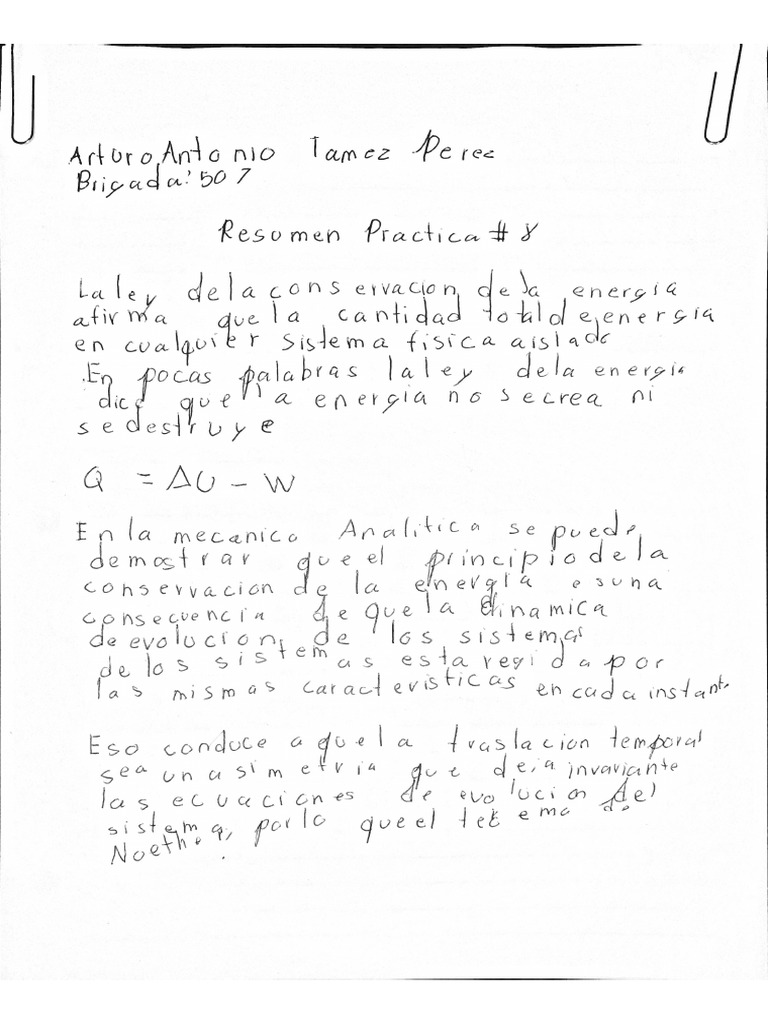 Arturo Antonio Tamez Perez
Brigada: 507
Resumen Practica # 8
La ley de la conservacion de la energia
afirma que la cantidad total de energia
en cualquier sistema fisica aislado
En pocas palabras la ley de la energia
dice que la energia no se crea ni
se destruye
Q = ΔU - W
En la mecanico Analitica se puede
demostrar que el principio de la
conservacion de la energia es una
consecuencia de que la dinamica
de evolucion de los sistemas
de los sistemas esta regida por
las mismas caracteristicas en cada instante
Eso conduce a que la traslacion temporal
sea una simetria que deja invariante
las ecuaciones de evolucion del
sistema, por lo que el teorema de
Noether.